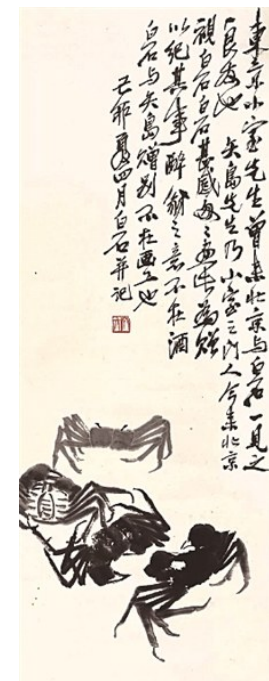 東京小室先生曾来北京与白石一見之
良友也 矢島先生乃小室之門人今来北京
視白石白石甚感每々画此為贈
以紀其事醉翁之意不在酒
白石与矢島贈別不在画工也
己卯夏四月白石并記